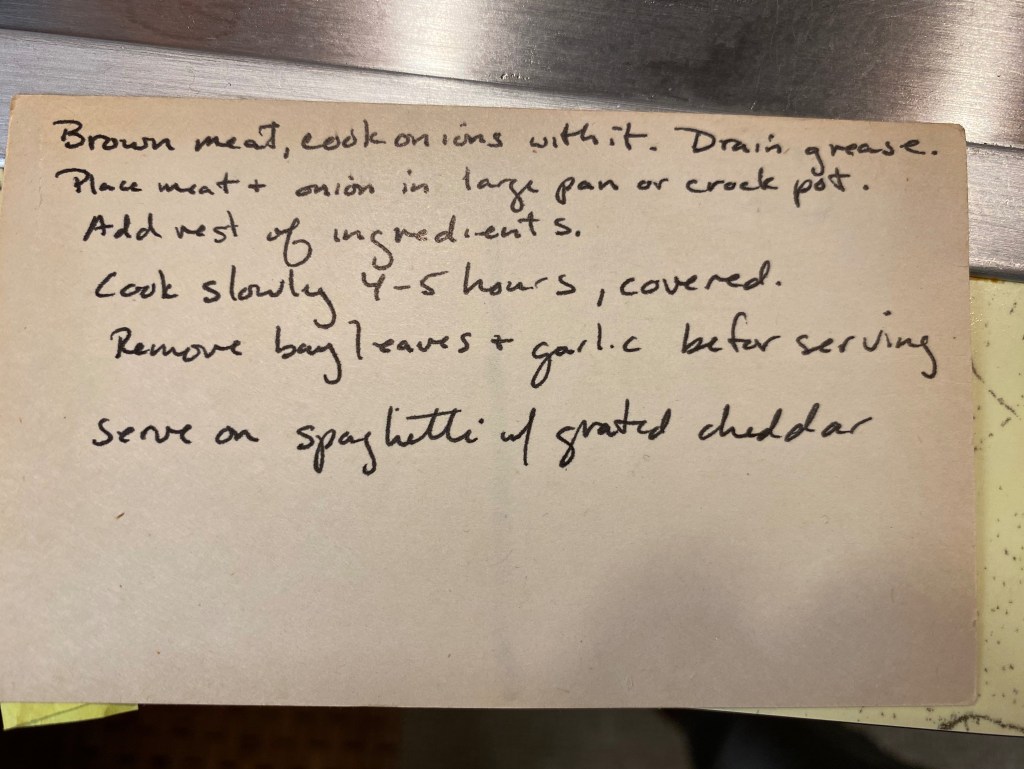 Brown meat, cook onions with it. Drain grease.
Place meat + onion in large pan or crock pot.
Add rest of ingredients.
Cook slowly 4-5 hours, covered.
Remove bay leaves + garlic befor serving
serve on spaghetti w/ grated cheddar